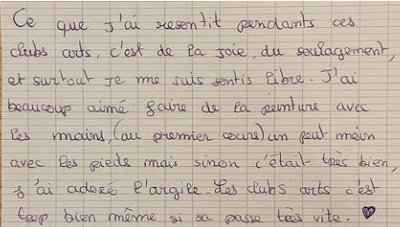 Ce que j'ai resentit pendants ces
clubs arts, c'est de la joie, du soulagement,
et surtout je me suis sentis libre. J'ai
beaucoup aimé faire de la peinture avec
les mains, (au premier cours) un peut moin
avec les pieds mais sinon c'était très bien,
j'ai adoré l'argile.. Les clubs arts c'est
trop bien même si sa passe très vite. ♥